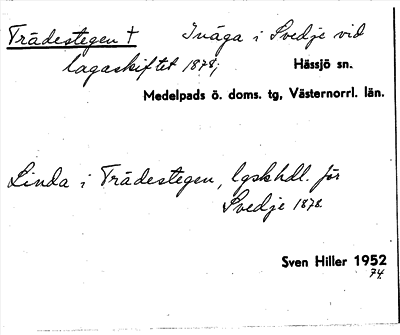 Trädestegen † Inäga i Svedje vid
lagaskiftet 1878;
Hässjö sn.
Medelpads ö. doms. tg, Västernorrl. län.
Linda i Trädestegen, lgskhdl. för
Svedje 1878.
Sven Hiller 1952
74.